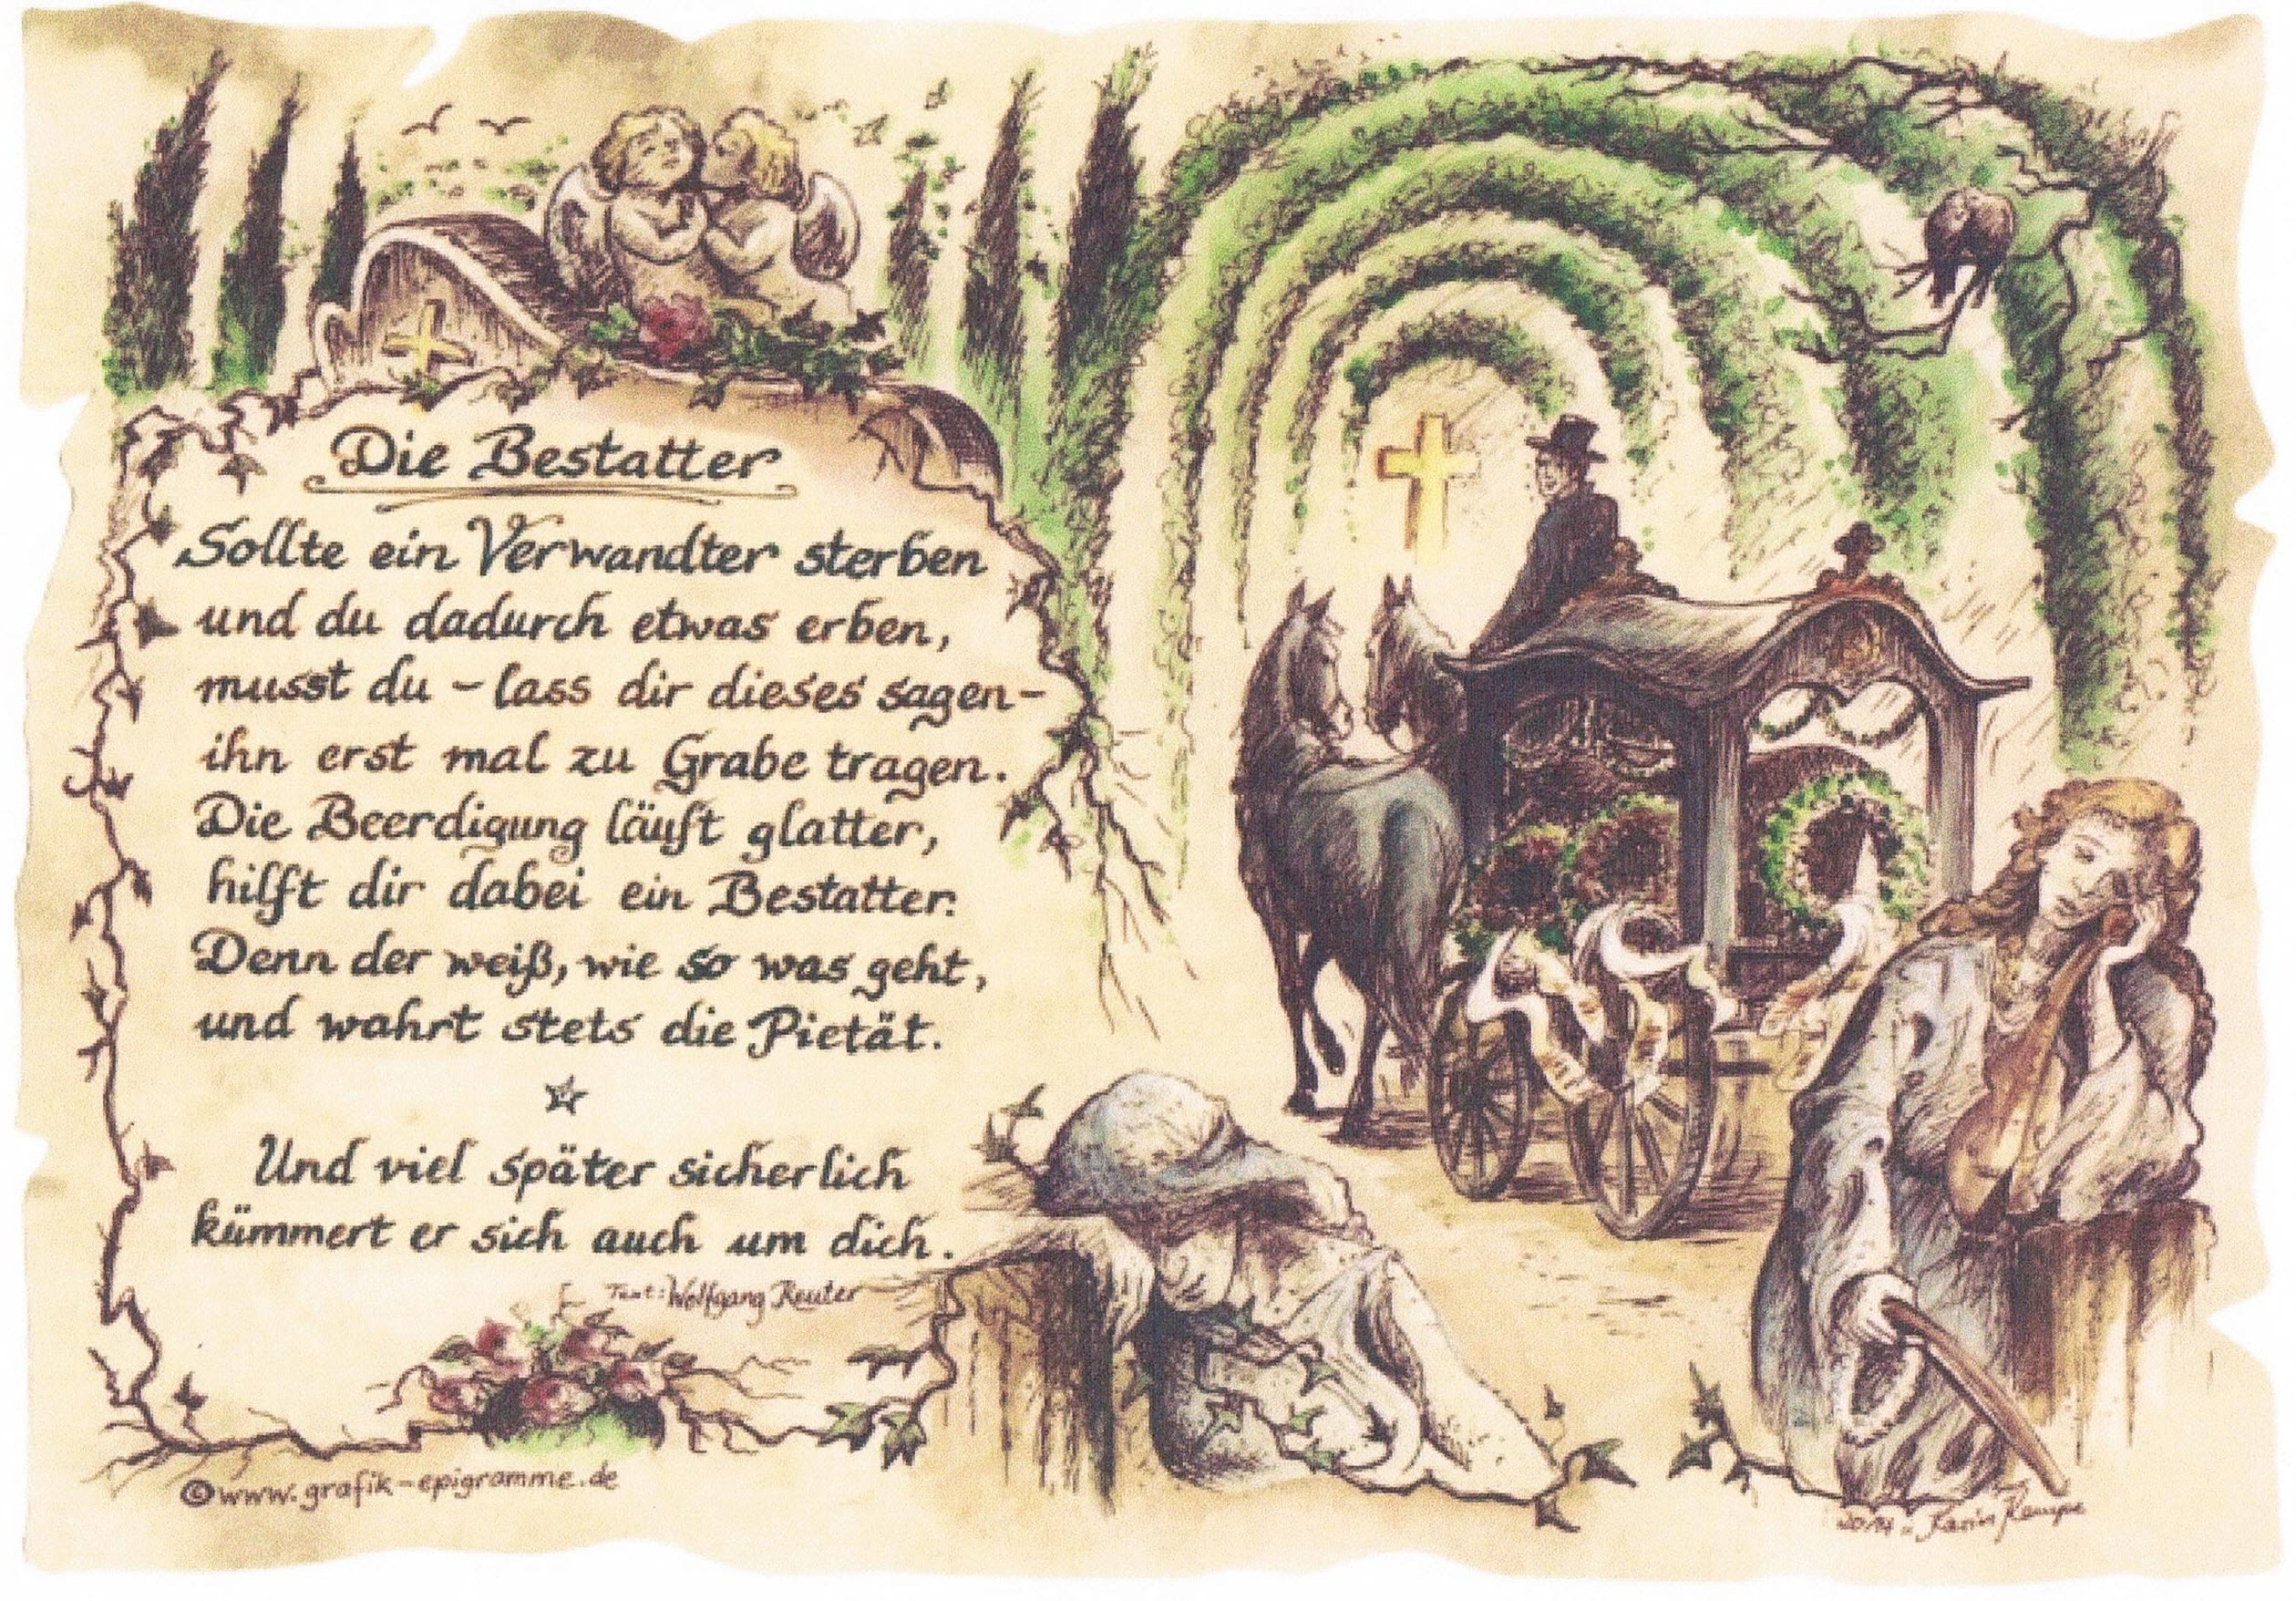 Die Bestatter
Sollte ein Verwandter sterben
und du dadurch etwas erben,
musst du – lass dir dieses sagen –
ihn erst mal zu Grabe tragen.
Die Beerdigung läuft glatter,
hilft dir dabei ein Bestatter.
Denn der weiß, wie so was geht,
und wahrt stets die Pietät.
Und viel später sicherlich
kümmert er sich auch um dich.
Text: Wolfgang Reuter
©www.grafik-epigramme.de
Karin Kempe